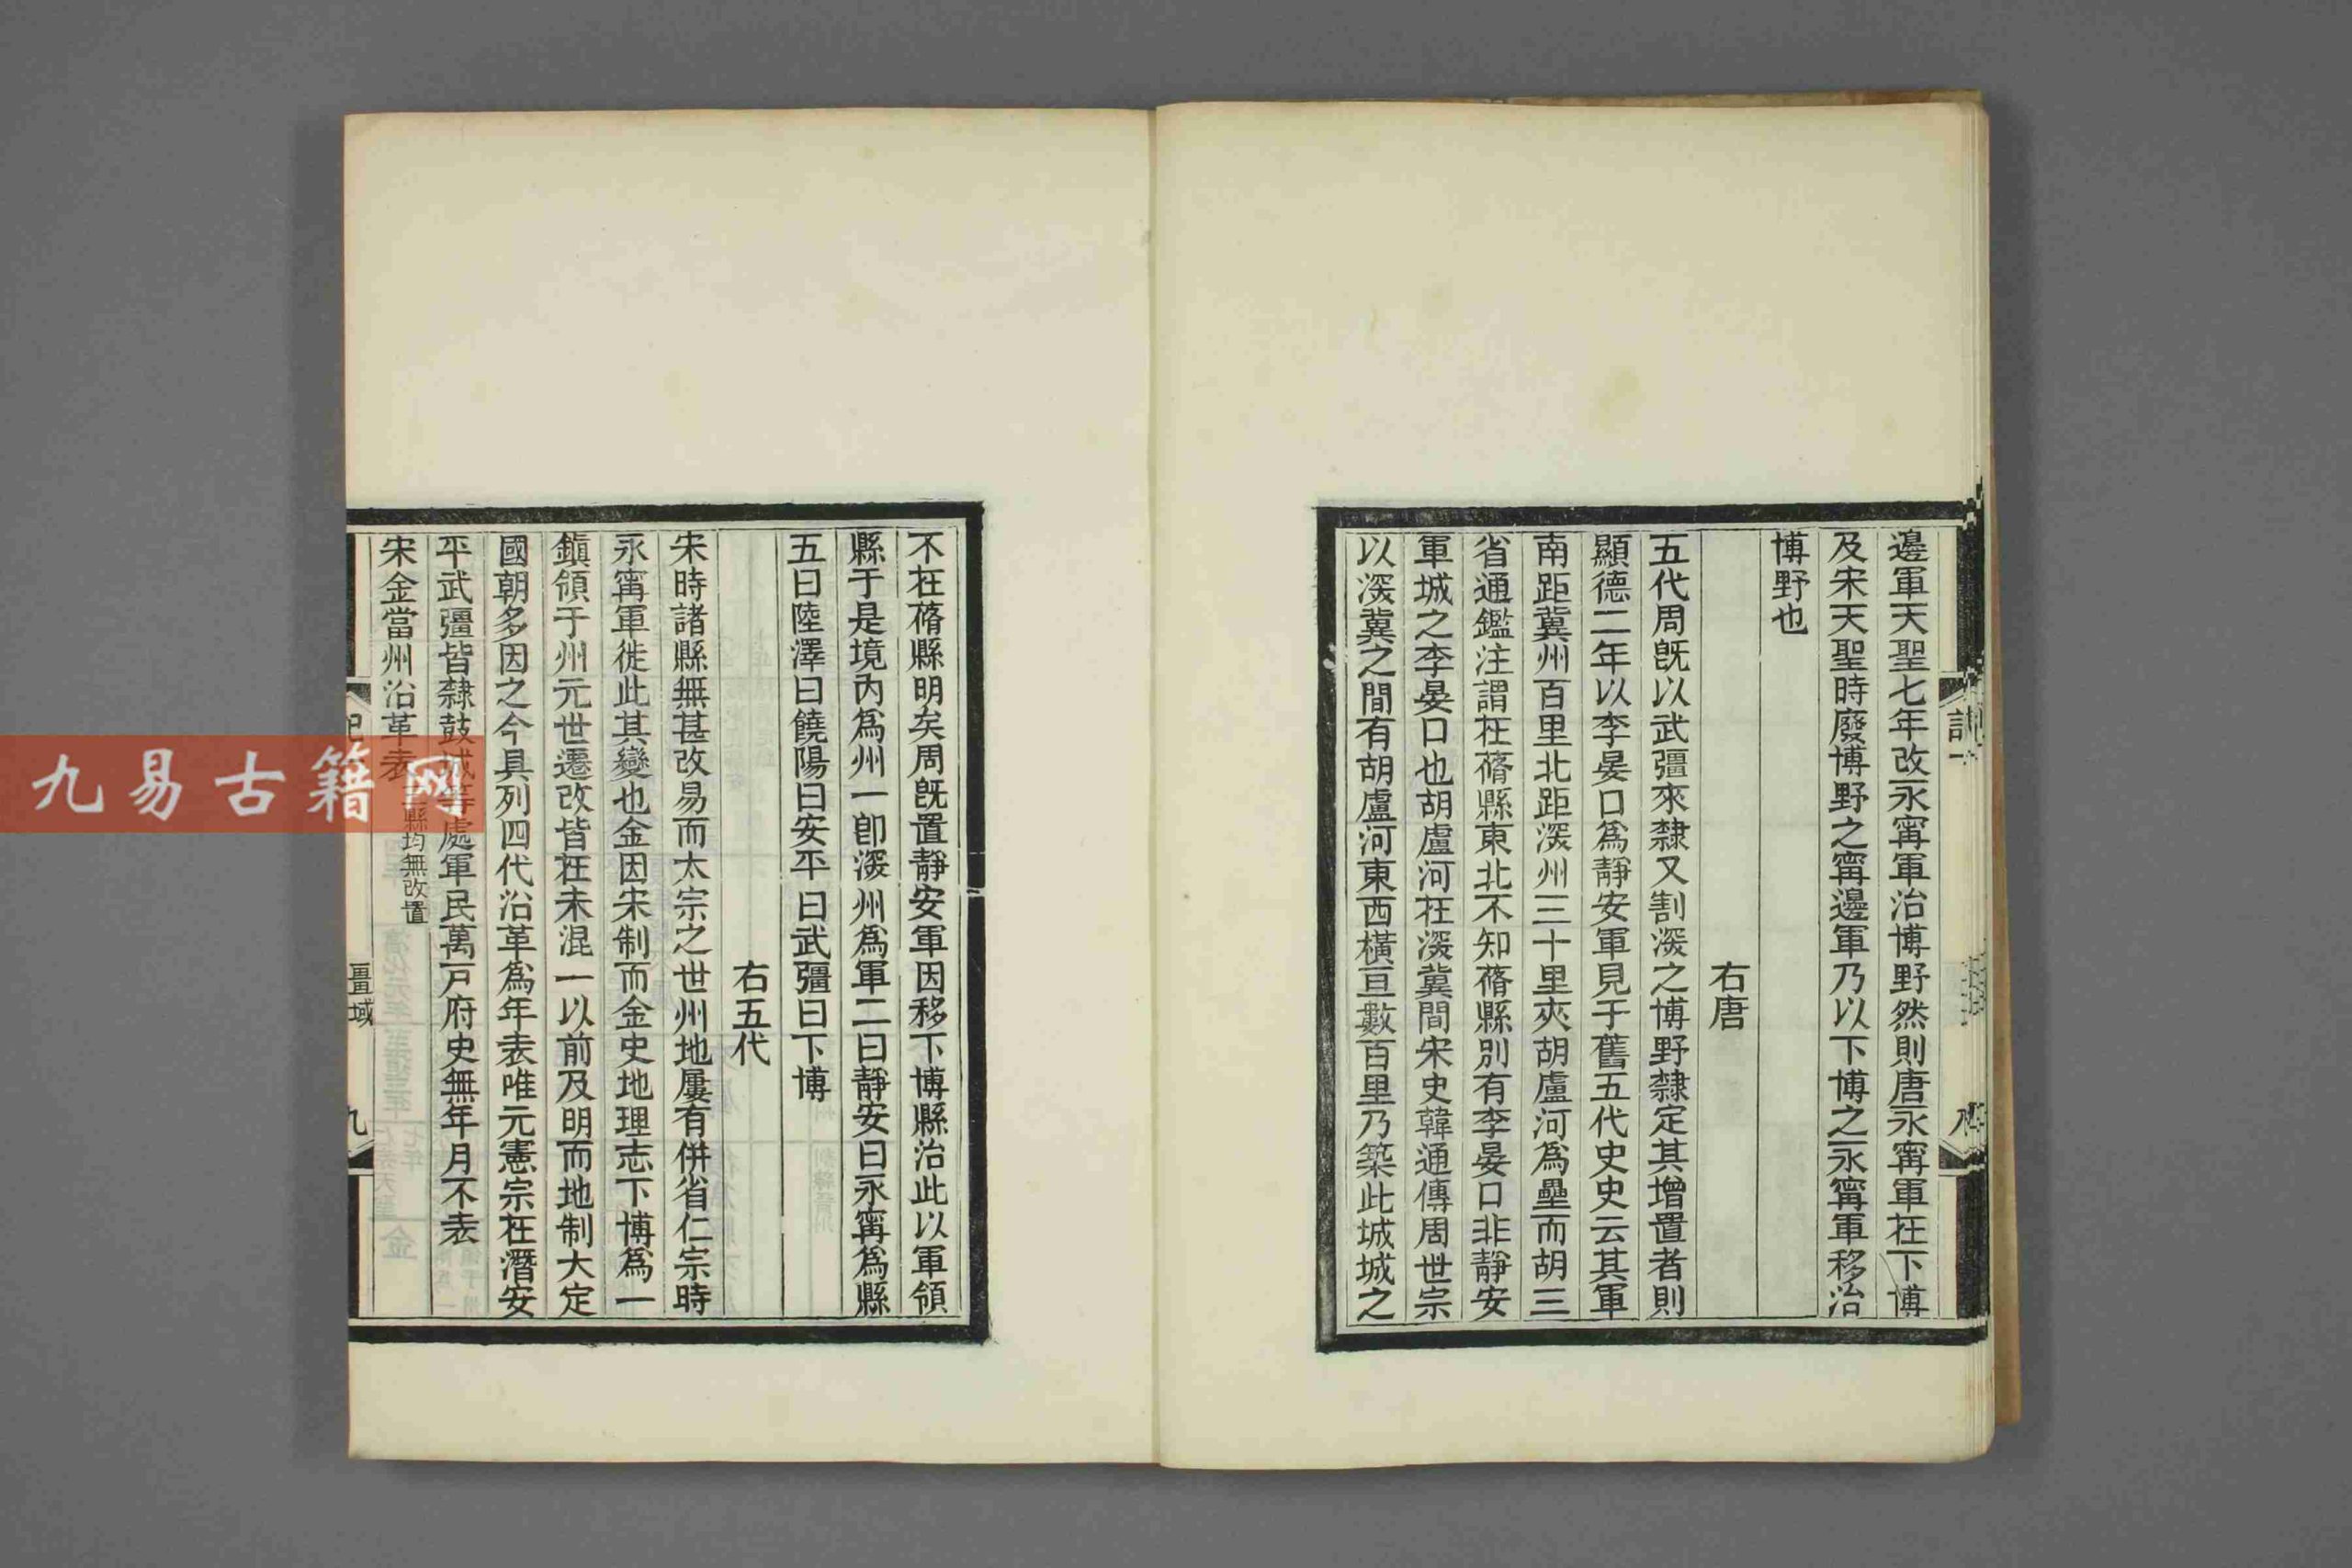 邊軍天聖七年改永甯軍治博野然則唐永甯軍在下博
及宋天聖時廢博野之甯邊軍乃以下博之永甯軍移治
博野也
右唐
五代周旣以武彊來隸又割深之博野隸定其增置者則
顯德二年以李晏口爲靜安軍見于舊五代史史云其軍
南距冀州百里北距深州三十里夾胡盧河爲壘而胡三
省通鑑注謂在蓨縣東北不知蓨縣別有李晏口非靜安
軍城之李晏口也胡盧河在深冀間宋史韓通傳周世宗
以深冀之間有胡盧河東西橫亘數百里乃築此城城之
不在蓨縣明矣周旣置靜安軍因移下博縣治此以軍領
縣于是境內爲州一卽深州爲軍二曰靜安曰永甯爲縣
五曰陸澤曰饒陽曰安平曰武彊曰下博
右五代
宋時諸縣無甚改易而太宗之世州地屢有併省仁宗時
永甯軍徙此其變也金因宋制而金史地理志下博爲一
鎮領于州元世遷改皆在未混一以前及明而地制大定
國朝多因之今具列四代沿革爲年表唯元憲宗在潛安
平武彊皆隸鼓城等處軍民萬戶府史無年月不表
宋金當州沿革表
縣均無改置
記
畺域
九
九易古籍网